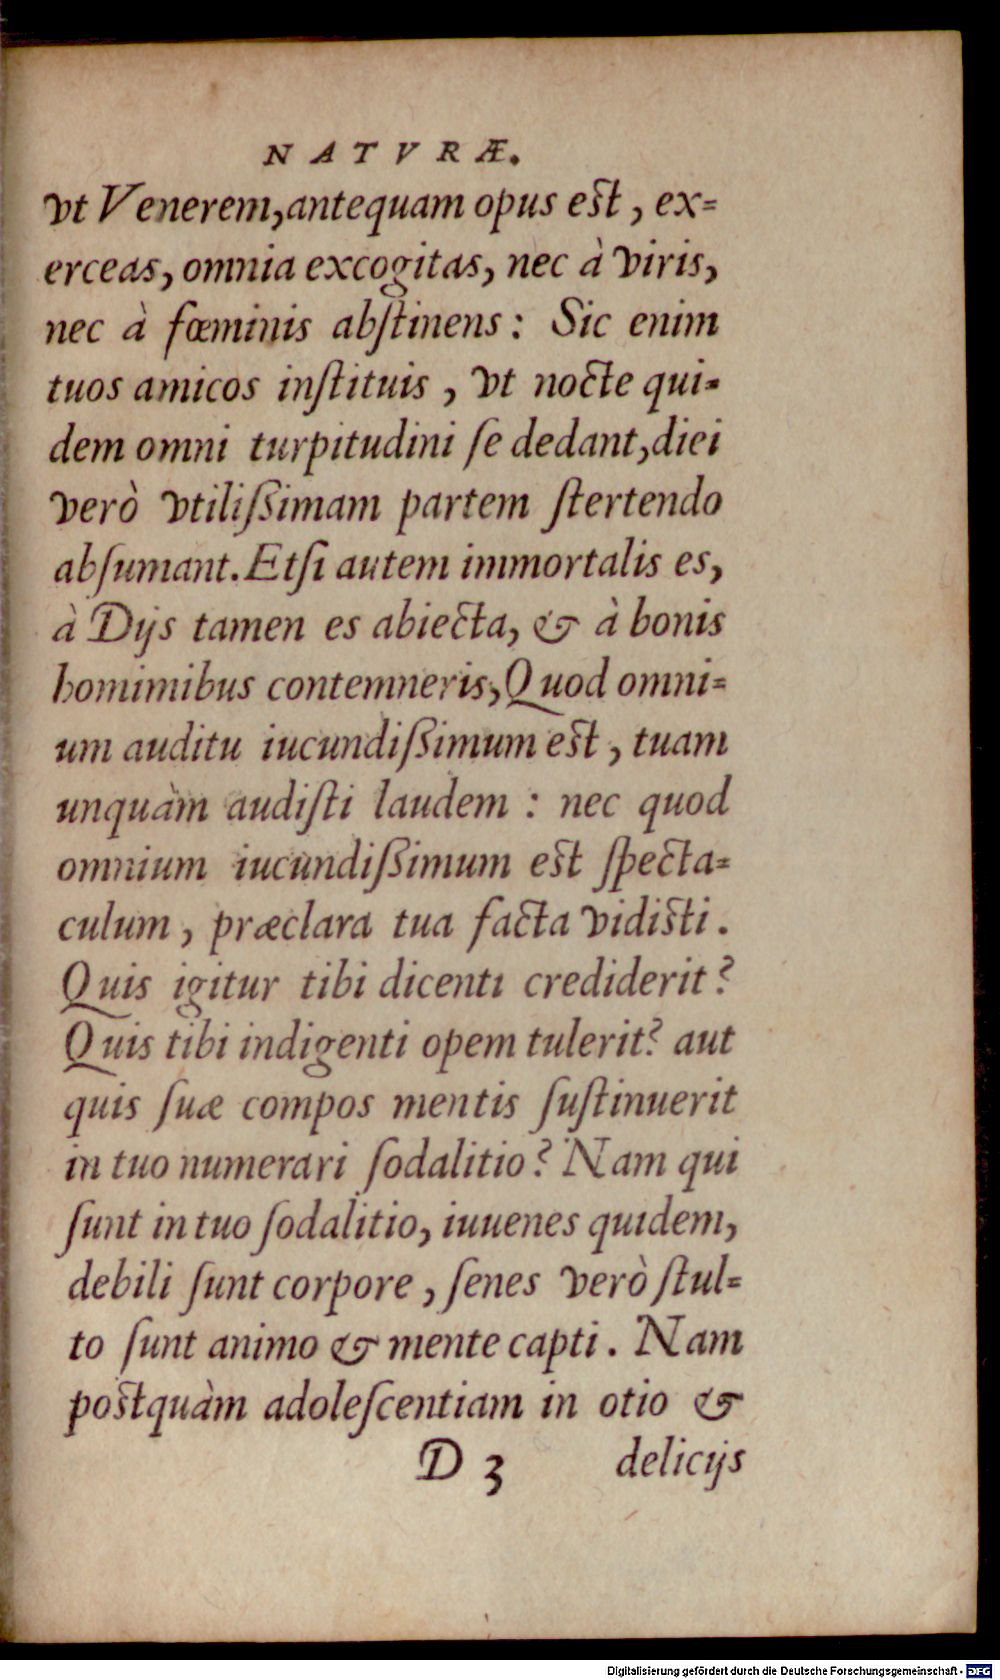 NATVRÆ.
vt Venerem, antequam opus est, ex=
erceas, omnia excogitas, nec à viris,
nec à fœminis abſtinens: Sic enim
tuos amicos inſtituis, vt nocte qui=
dem omni turpitudini ſe dedant, diei
verò vtiliſſimam partem ſtertendo
abſumant. Etſi autem immortalis es,
à Dijs tamen es abiecta, & à bonis
homimibus contemneris, Quod omni=
um auditu iucundiſſimum est, tuam
unquàm audiſti laudem: nec quod
omnium iucundiſſimum est ſpecta=
culum, præclara tua facta vidisti.
Quis igitur tibi dicenti crediderit?
Quis tibi indigenti opem tulerit? aut
quis ſuæ compos mentis ſuſtinuerit
in tuo numerari ſodalitio? Nam qui
ſunt in tuo ſodalitio, iuuenes quidem,
debili ſunt corpore, ſenes verò ſtul=
to ſunt animo & mente capti. Nam
postquàm adoleſcentiam in otio &
D 3 delicijs
Digitalisierung gefördert durch die Deutsche Forschungsgemeinschaft - DFG